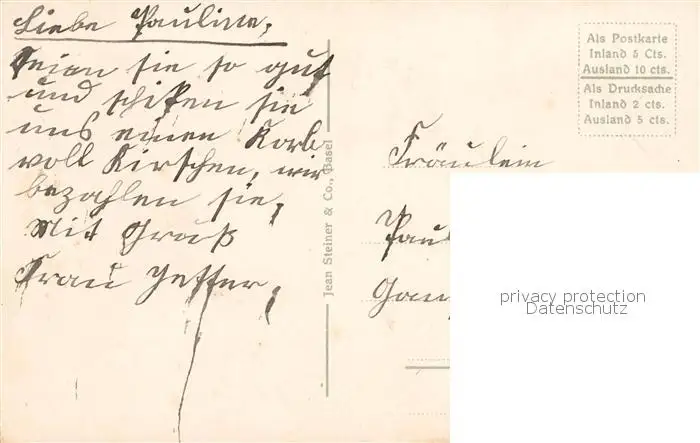 Liebe Pauline,
Seien sie so gut
und schiken sie
uns einen Korb
voll Kirschen, wir
bezahlen sie,
Mit Gruß
Frau
Jean Steiner & Co., Basel
Als Postkarte
Inland 5 Cts.
Ausland 10 cts.
Als Drucksache
Inland 2 cts.
Ausland 5 cts.
Fräulein
Paul
privacy protection
Datenschutz